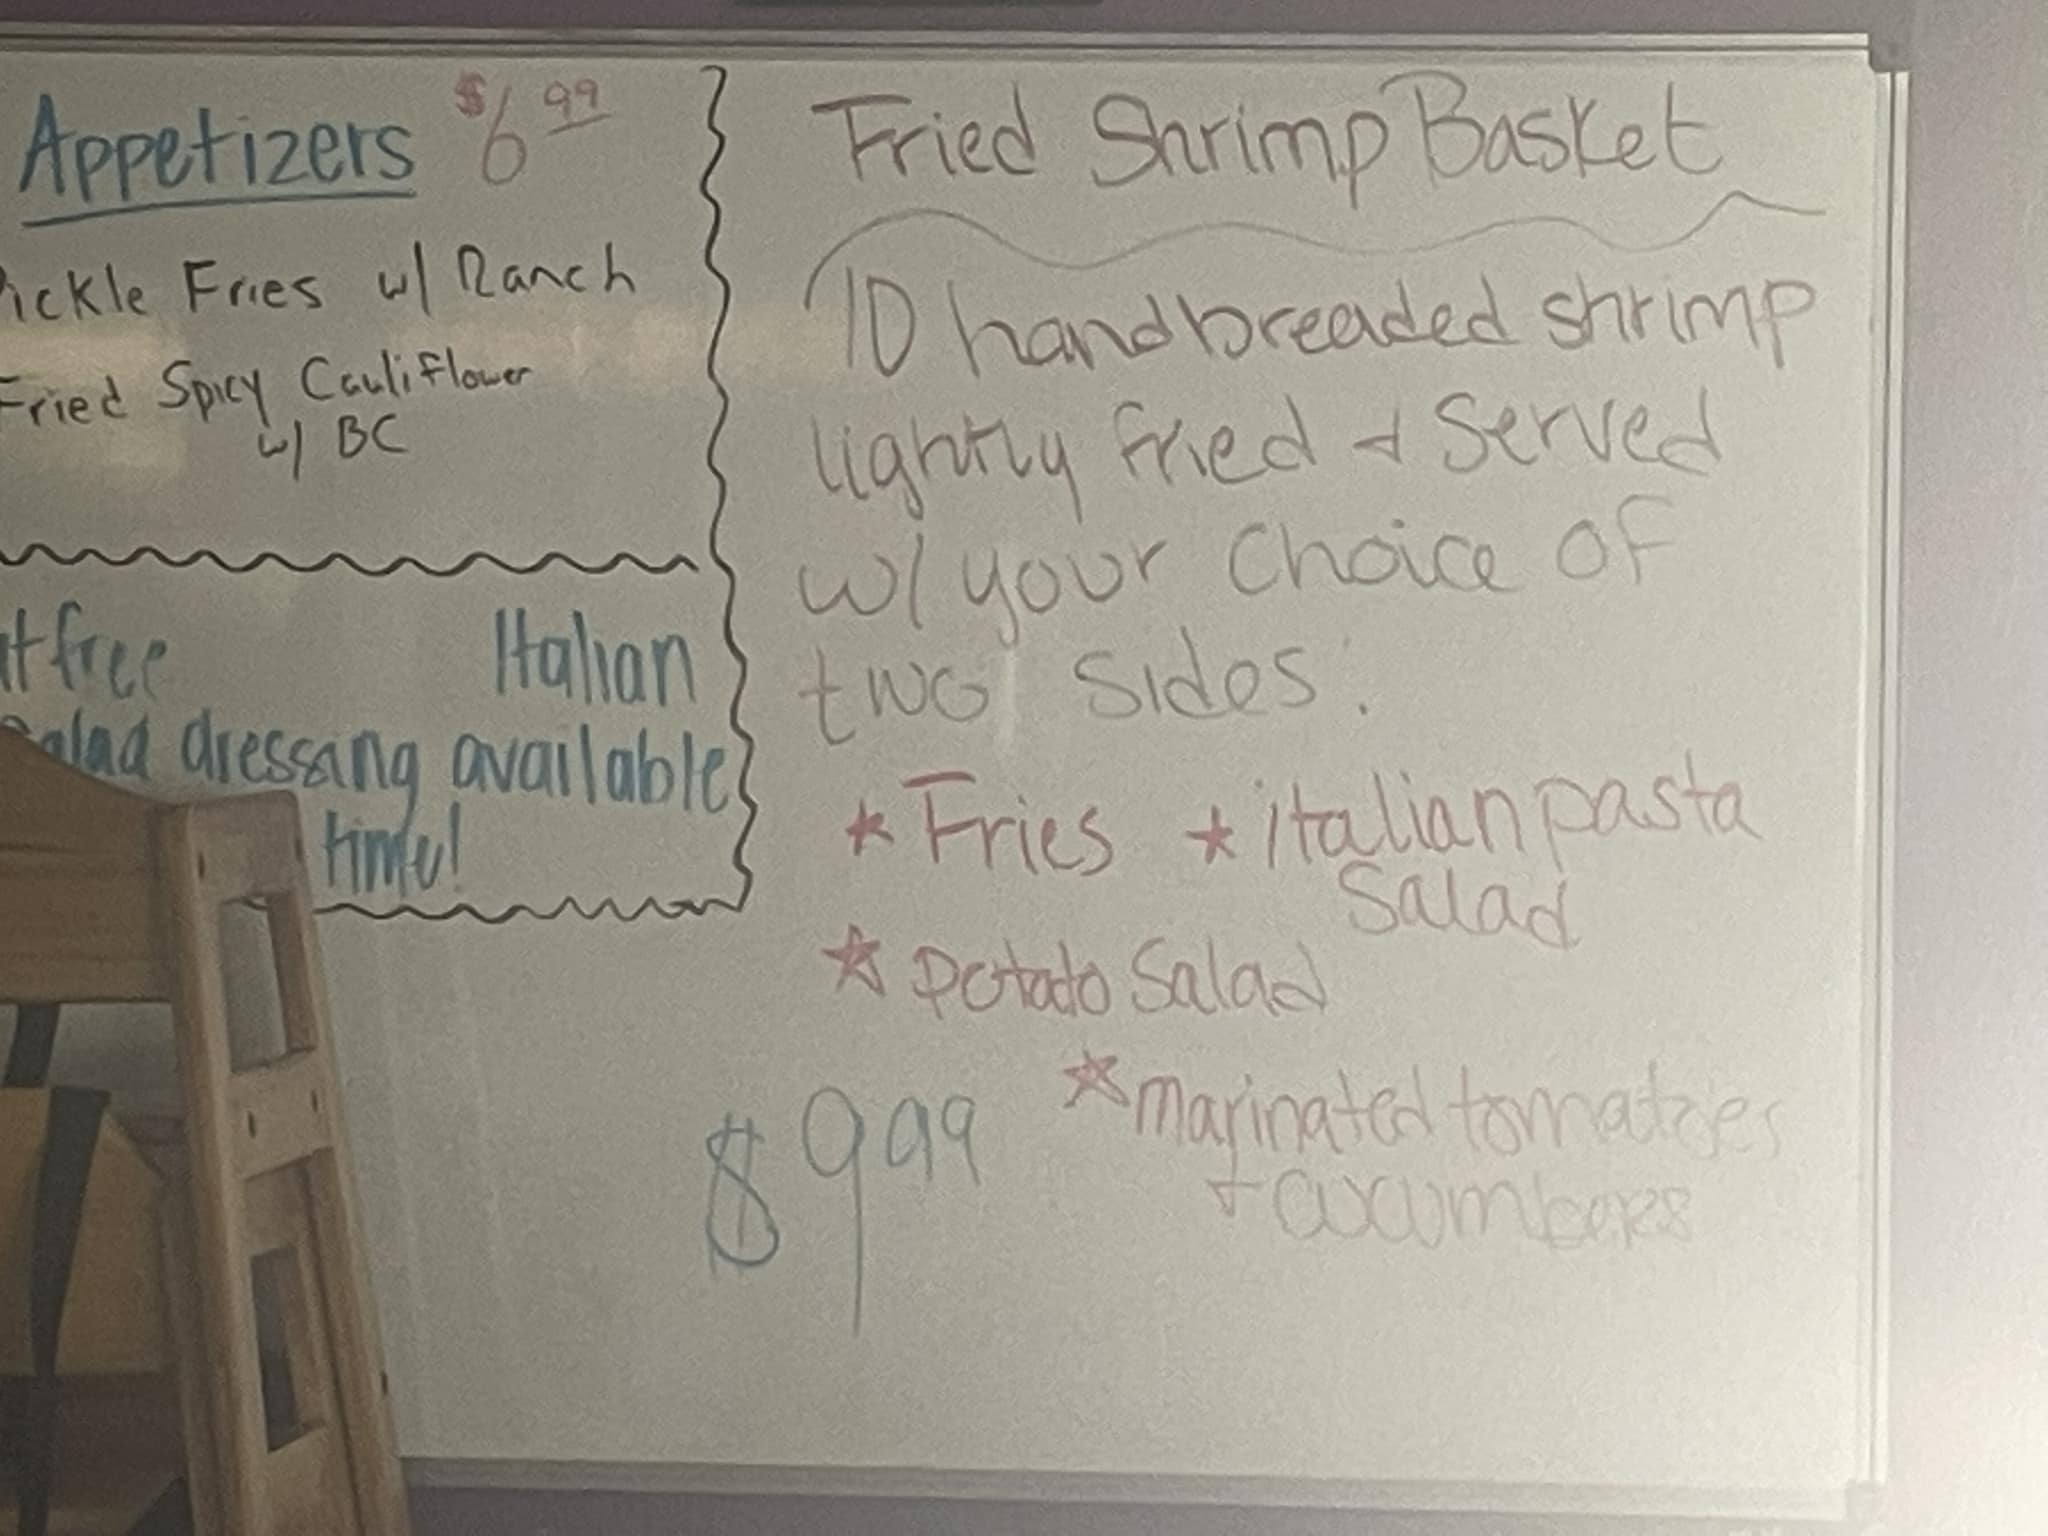 Appetizers $6.99
Pickle Fries w/ Ranch
Fried Spicy Cauliflower
w/ BC
free Italian
salad dressing available
time!
Fried Shrimp Basket
10 handbreaded shrimp
lightly fried & served
w/ your choice of
two sides:
* Fries * italian pasta
salad
* potato salad
* marinated tomatoes
+ cucumbers
$9.99